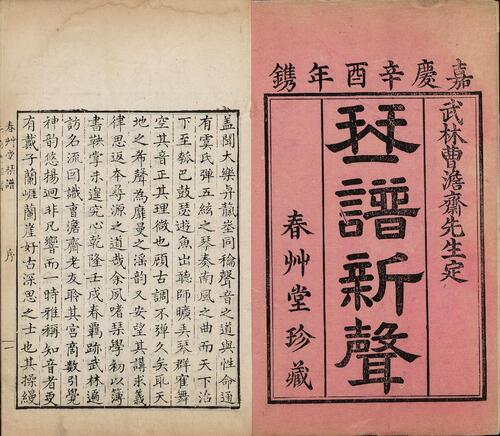 嘉慶辛酉年鐫
武林曹澹齋先生定
琴譜新聲
春艸堂珍藏
蓋聞大樂同聲音之道與性命通
有虞氏彈五絃之琴奏南風之曲而天下治
下至瓠巴鼓瑟遊魚出聽師曠奏琴群雀舞
空其音正其理微也顧古調不彈久矣天
地之希聲為靡曼之淫韵又安望其講求義
律思返本尋源之道哉余夙嗜琴學初以簿
書鞅掌未遑究心乾隆壬戌春羈跡武林遍
訪名流因識曹澹齋老友聆其宮商數引覺
神韵悠揚迥非凡響而一時雅稱知音者更
有戴子蘭崕蘭崖好古深思之士也其操縵
春艸堂琴譜
序
一